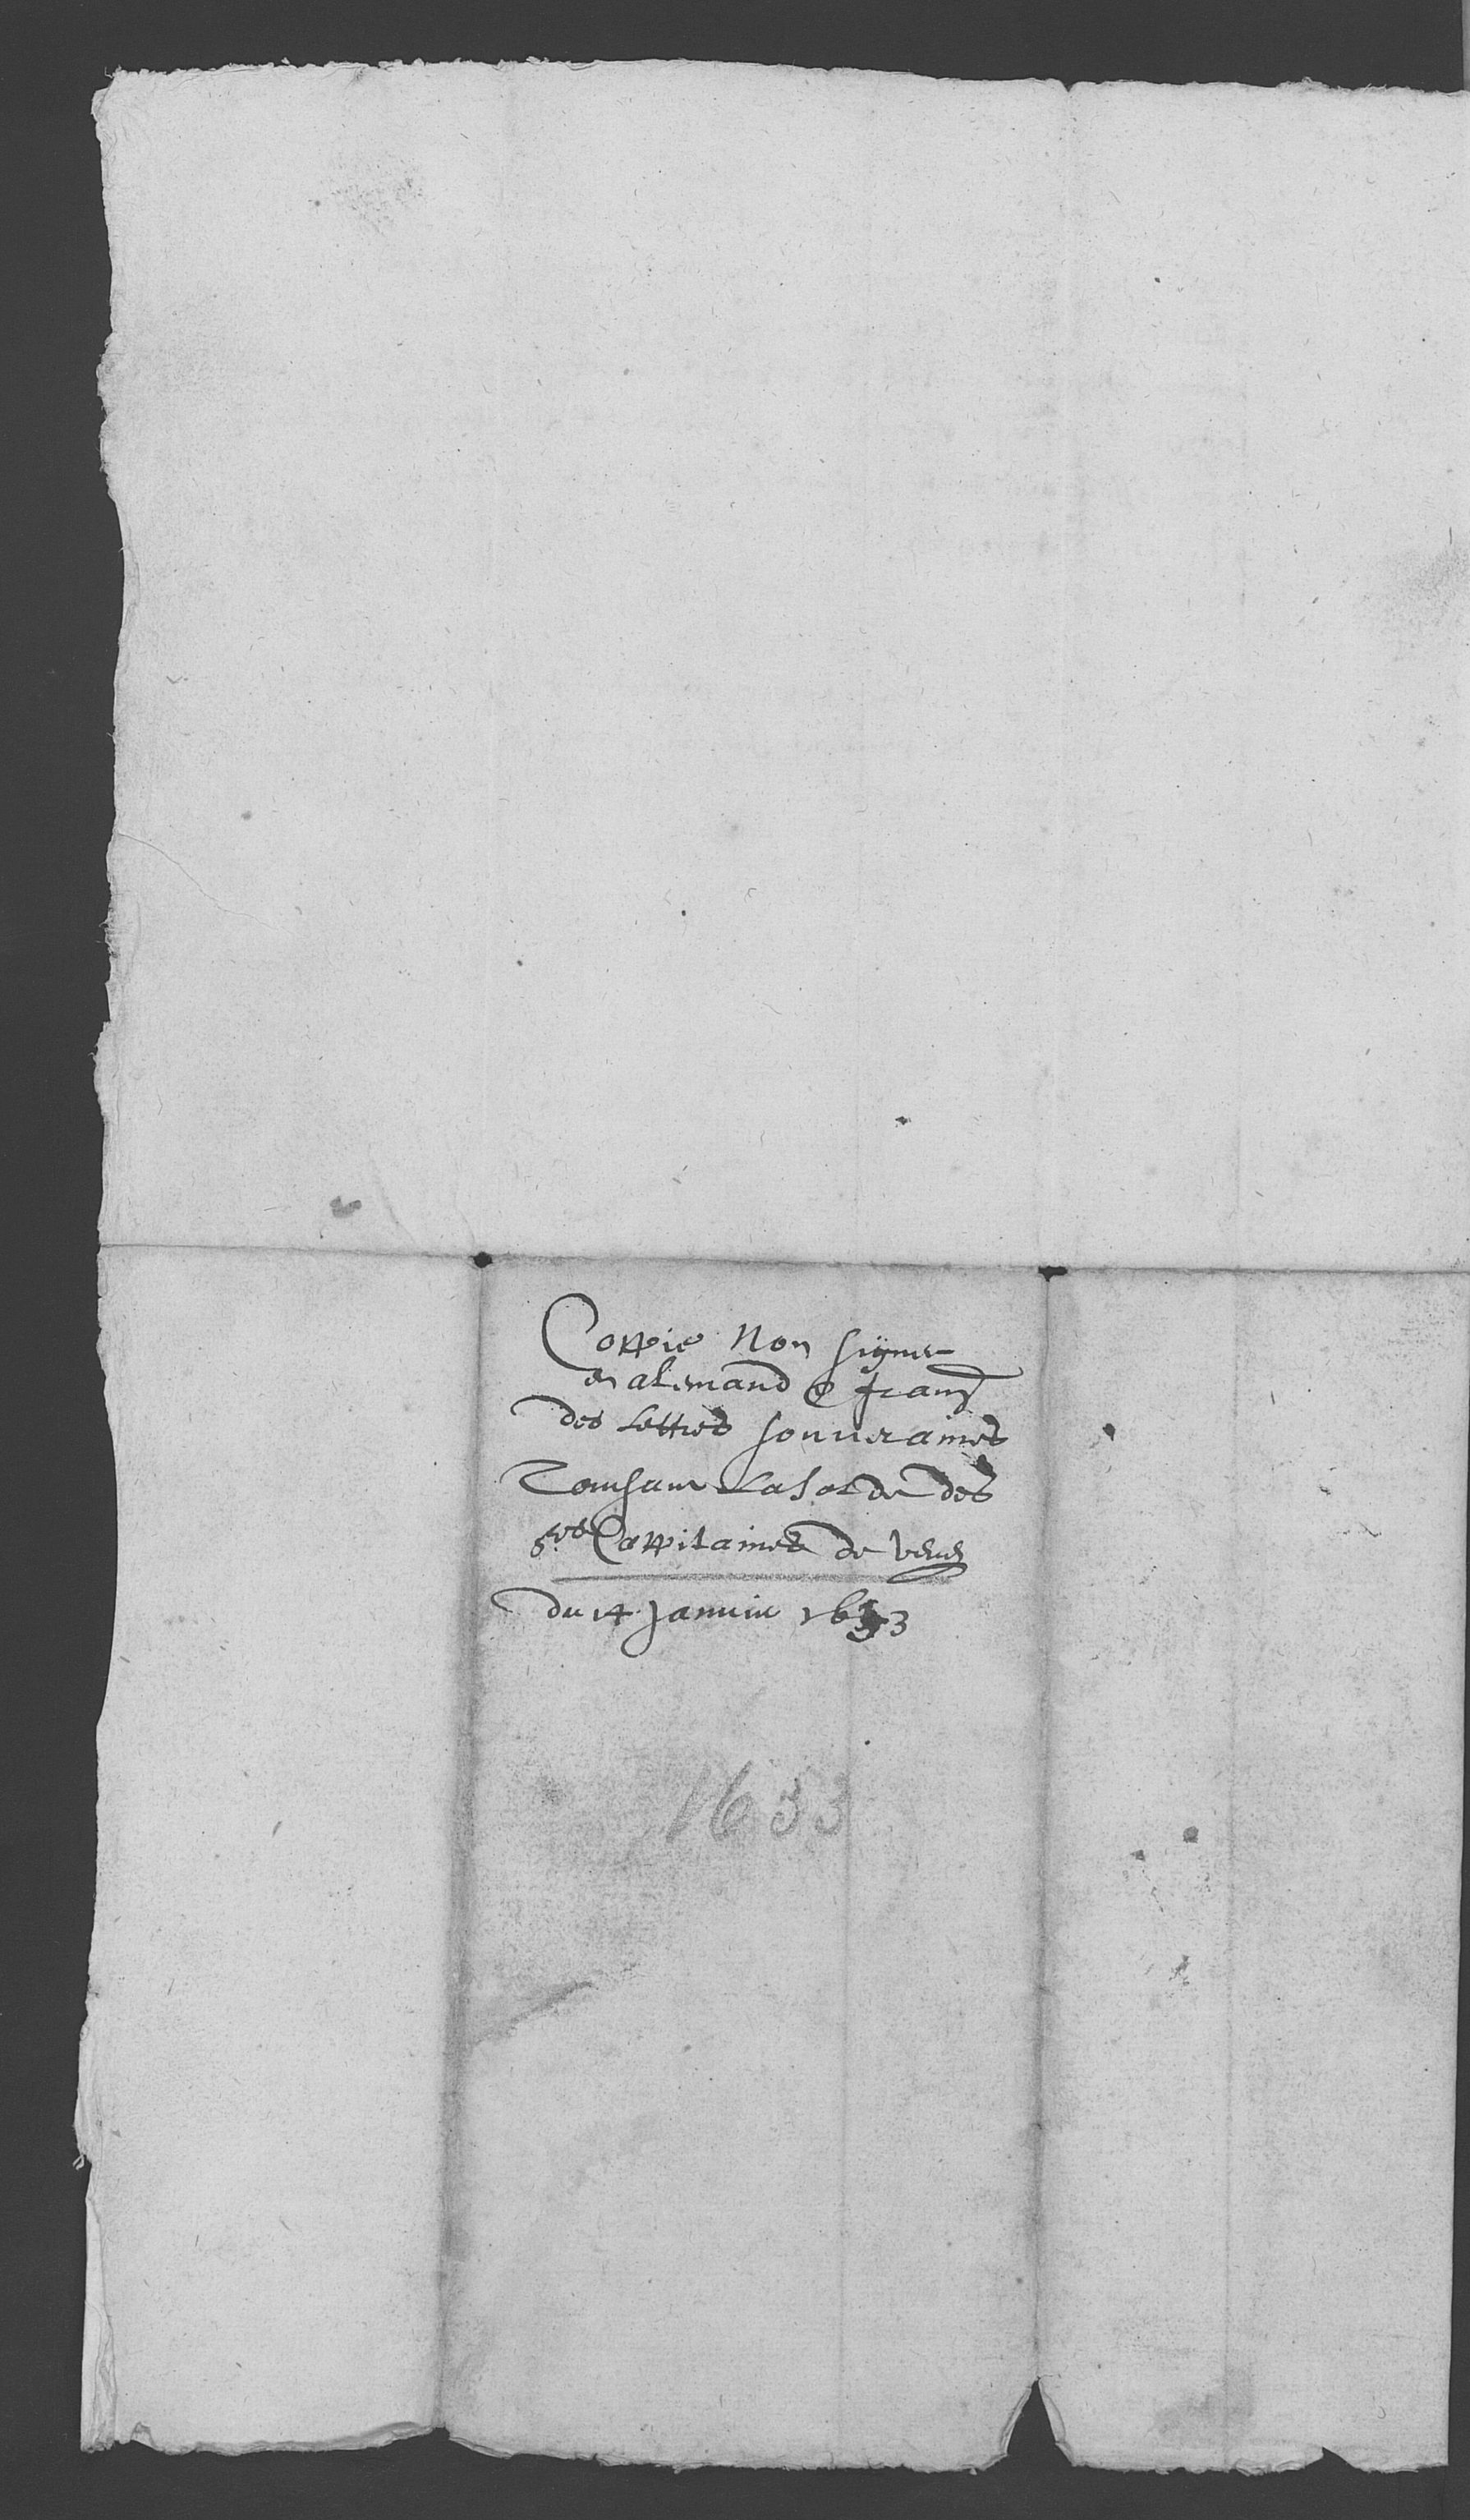 Coppie Non signee
en alemand & franç
des Lettres souueraines
Touchant La solde des
Srs Cappitaines de
du 14 Januier 1633
1633